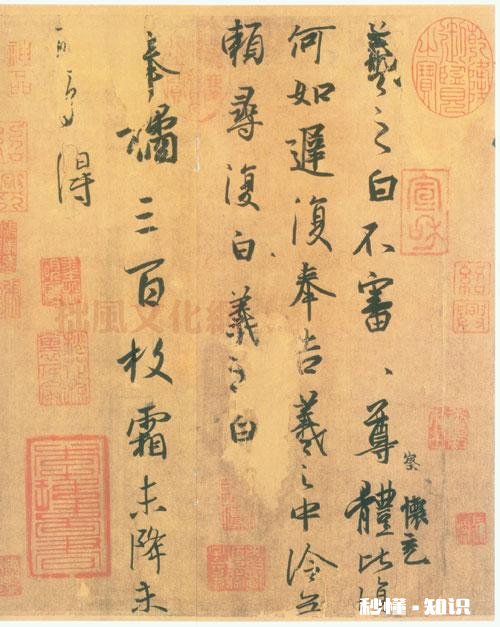 羲之白不審、尊體比復
察
懷充
何如遲復奉告羲之中冷無
賴尋復白、羲之白
奉橘三百枚霜未降未
可多得
紹興
拙風文化網
秒懂·知识